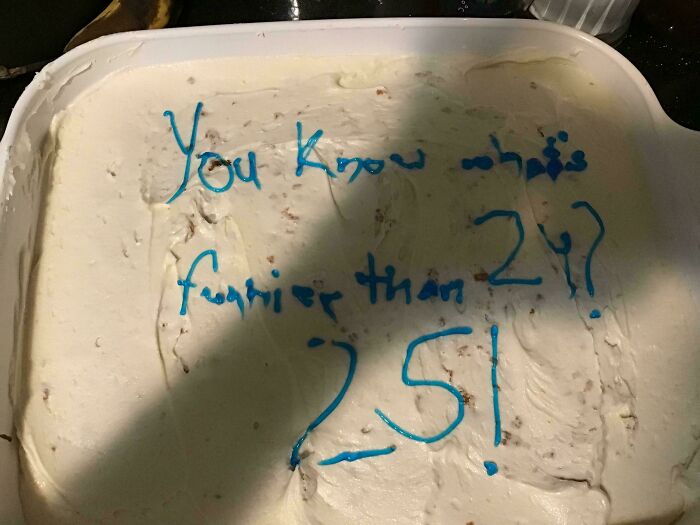 You Know what's
funnier than 24?
25!